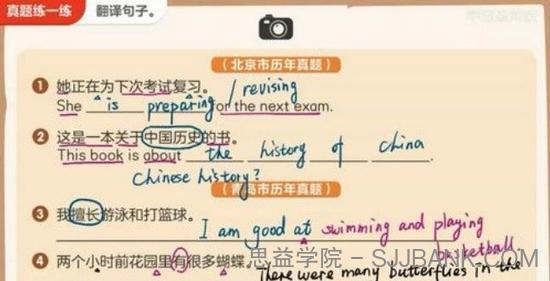 真题练一练 翻译句子。
（北京市历年真题）
1 她正在为下次考试复习。 / revising
She is preparing for the next exam.
2 这是一本关于中国历史的书。
This book is about the history of china.
Chinese history?
（青岛市历年真题）
3 我擅长游泳和打篮球。
I am good at swimming and playing
basketball.
思益学院 - SJJBANK.COM
4 两个小时前花园里有很多蝴蝶。
There were many butterflies in the